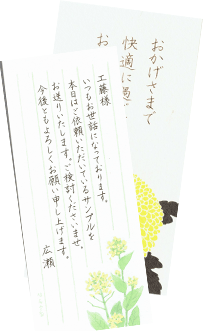 工藤様
いつもお世話になっております。
本日はご依頼いただいているサンプルを
お送りいたします。ご検討くださいませ。
今後ともよろしくお願い申し上げます。
広瀬
おかげさまで
快適に過
お